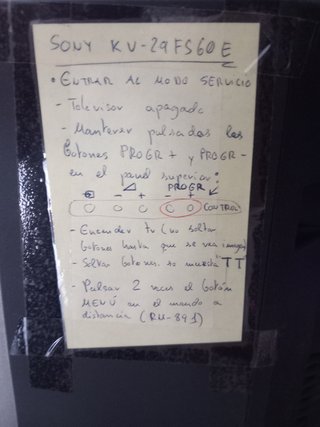 SONY KV-29FS60E
• ENTRAR AL MODO SERVICIO
- Televisor apagado
- Mantener pulsados los
botones PROGR + y PROGR -
en el panel superior:
- + PROGR - +
CONTROL
- Encender tv (no soltar
botones hasta que se vea imagen)
- Soltar botones. se muestra "TT"
- Pulsar 2 veces el botón
MENÚ en el mando a
distancia (RM-891)